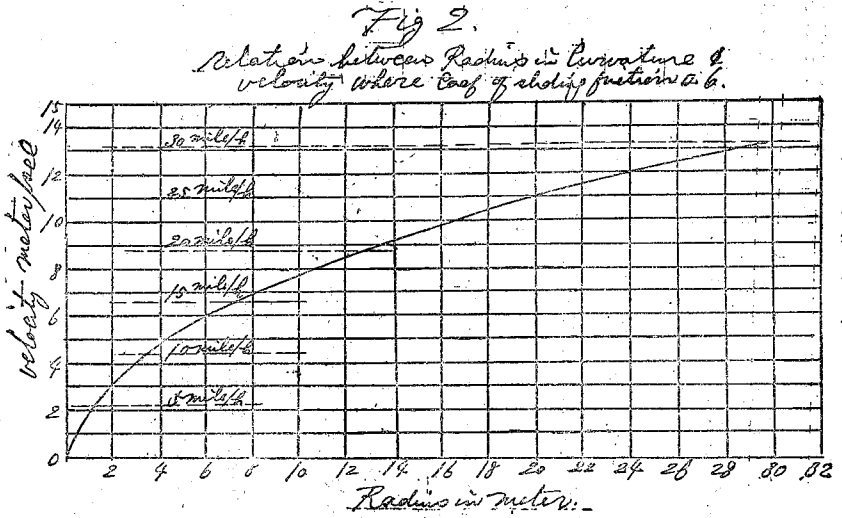 Fig 2.
Relation between Radius in Curvature &
velocity where Coef of sliding friction 0.6.
velocity meter/sec
15
14
12
10
8
6
4
2
0
30 mile/h
25 mile/h
20 mile/h
15 mile/h
10 mile/h
5 mile/h
2 4 6 8 10 12 14 16 18 20 22 24 26 28 30 32
Radius in meter.